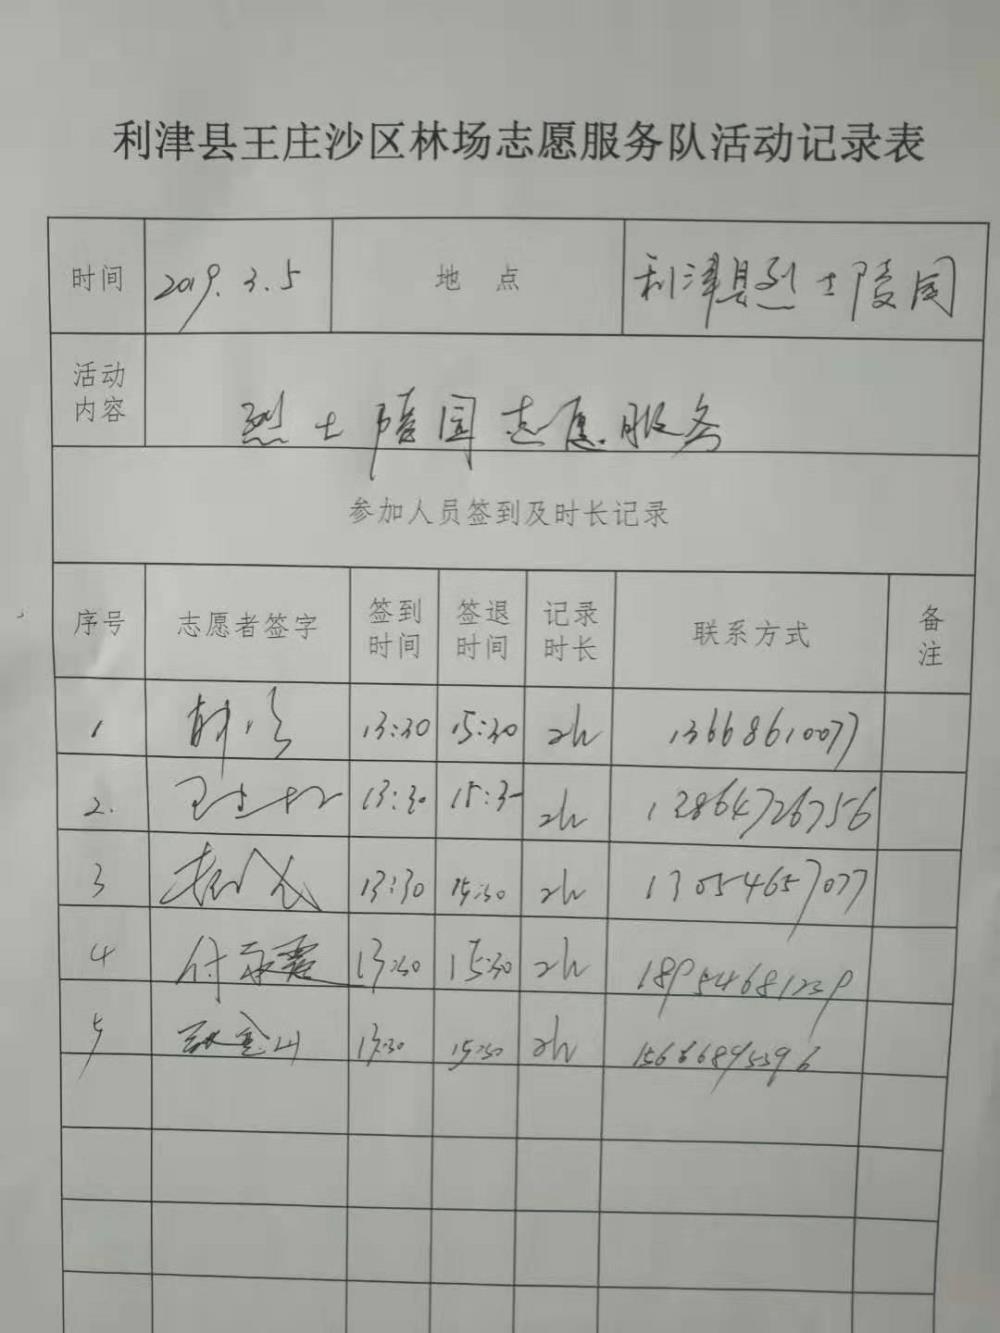 利津县王庄沙区林场志愿服务队活动记录表
时间 2019.3.5 地 点 利津县烈士陵园
活动内容 烈士陵园志愿服务
参加人员签到及时长记录
序号 志愿者签字 签到时间 签退时间 记录时长 联系方式 备注
1 13:30 15:30 2h 13668610077
2. 13:30 15:30 2h 13864726756
3 13:30 15:30 2h 13054657077
4 付永霞 13:30 15:30 2h 18954681239
5 张金山 13:30 15:30 2h 15666895396